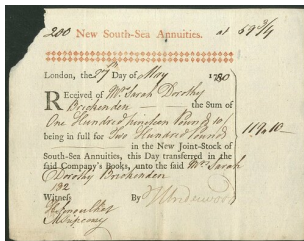 200 New South-Sea Annuities. at 59 3/4
London, the 27th Day of May 1780
Received of Mrs. Sarah Dorothy
Brickenden the Sum of
One Hundred nineteen Pounds 10/
being in full for Two Hundred Pounds 119.10-
in the New Joint-Stock of
South-Sea Annuities, this Day transferred in the
said Company's Books, unto the said Mrs. Sarah
Dorothy Brickenden
Witness By Underwood